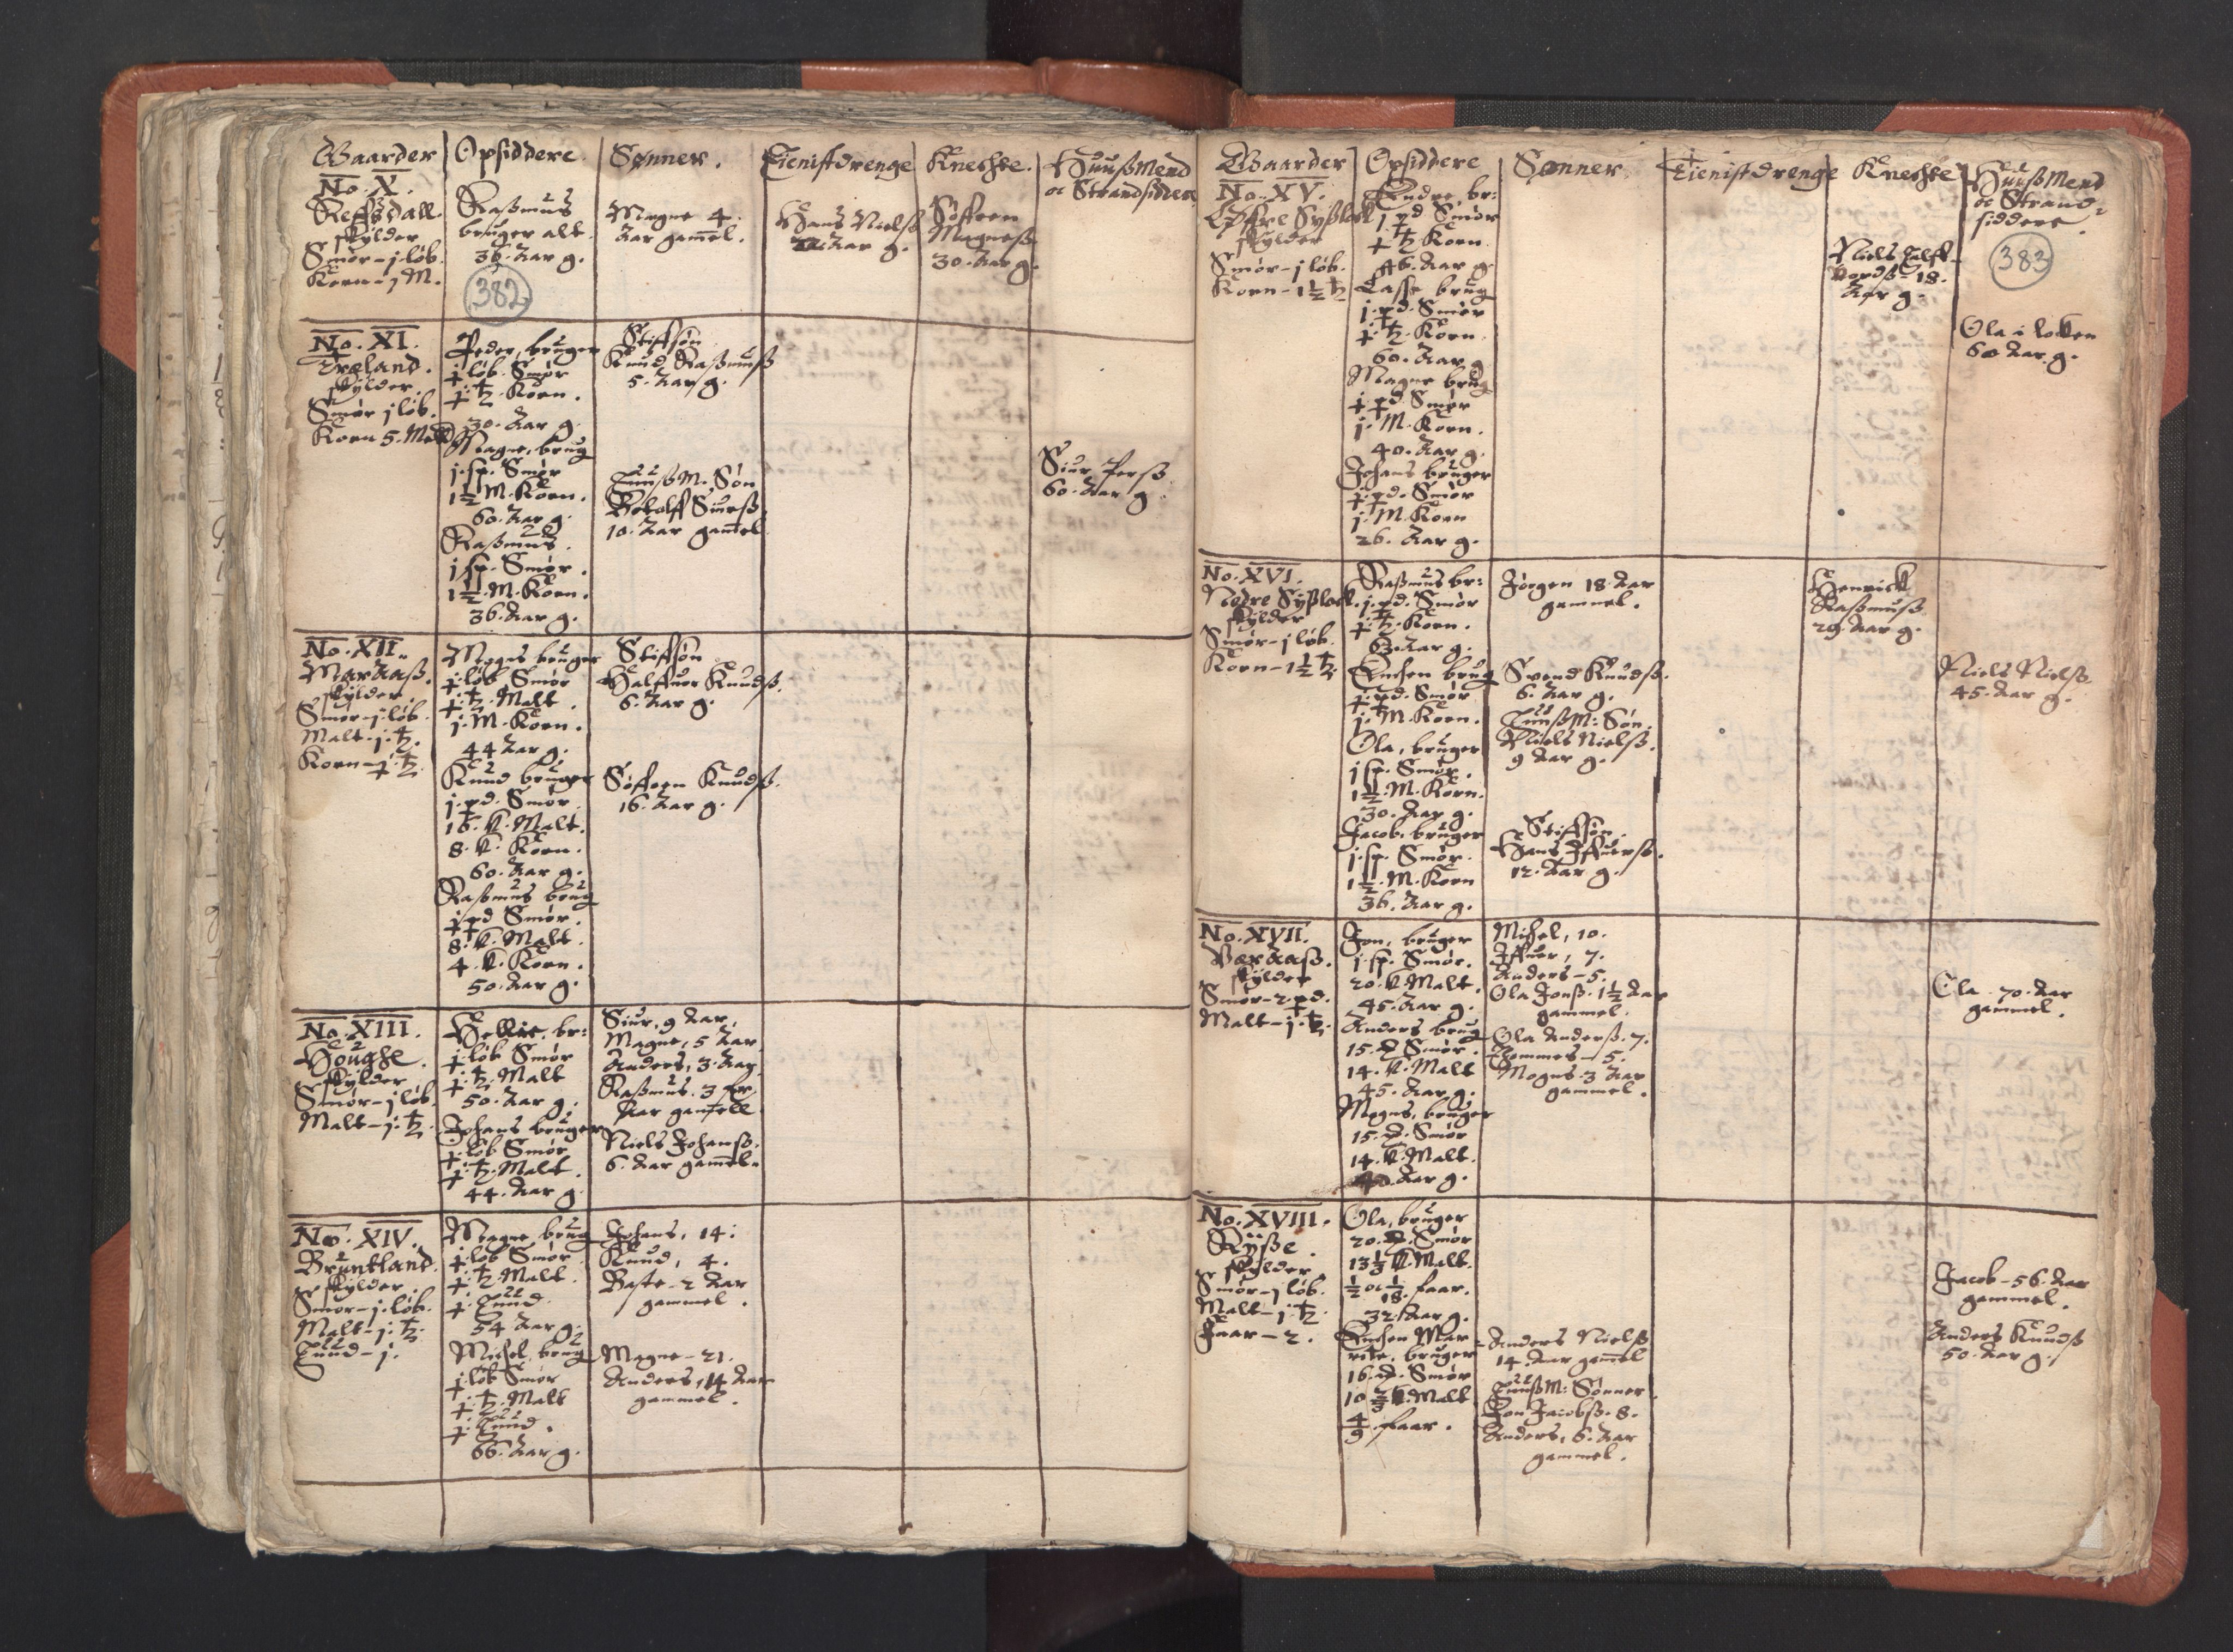 Gaarder
Opsiddere
Sønner.
Tienistdrenge
Knechte.
Huußmend
oc Strandsiddere
No. X.
Reffsdall.
skylder
Smør - j løb.
Korn - j M.
Raßmus
bruger alt.
36. Aar g.
382
Magne 4.
Aar gamel.
Hans Nielß
Aar g.
Søffren
Magneß.
30. Aar g.
No. XI.
Træland.
skylder.
Smør j løb.
Korn 5. Mæl
Peder, bruger
j løb. Smør
30. Aar g.
Magne, brug
j. sp. Smør
1½ M. Korn.
60. Aar g.
Raßmus.
j sp. Smør.
1½. M. Korn.
36. Aar g.
Stiffsøn
Knud Raßmuß
5. Aar g.
Huuß M. Søn
Botolff Siurß
10. Aar gamel
Siur Perß
60. Aar g.
No. XII.
Maraaß.
skylder.
Smør - j. løb.
Malt - j. t.
Korn
Mogns bruger
løb Smør
Malt.
j. M. Korn.
44 Aar g.
Knud bruger
j. pd. Smør
16. K. Malt.
8. K. Korn.
60. Aar g.
Raßmus brug
pd Smør.
8. K. Malt.
4. K. Korn.
50. Aar g.
Stiffsøn
Halffuor Knudß.
6. Aar g.
Søffren Knudß.
16. Aar g.
No. XIII.
Houghe.
skylder
Smør - j løb.
Malt
br:
løb Smør
Malt
50. Aar g.
Johans bruger
løb Smør
Malt.
44. Aar g.
Siur, 9 Aar,
Magne, 5 Aar
Anders, 3. Aar
Raßmus. 3
Aar gamell
Niels Johanß.
6. Aar gamel.
No. XIV.
Bruntland.
skylder.
Smør - j. løb.
Malt
Huud - j.
Magne brug
løb Smør
Malt.
Huud.
54 Aar g.
Michel, brug
løb Smør
Malt
Huud.
66. Aar g.
Johans, 14:
Knud, 4.
Baste - 2 Aar
gammel.
Magne - 21.
Anders, 14 Aar
gammel.
Gaarder
Opsiddere
Sønner.
Tienistdrenge
Knechte
Huußmend
oc Strand-
siddere.
383
No. XV.
Øfre Syßlack
skylder
Smør - j løb.
Korn - 1½
Endre, br:
j pd Smør
Korn.
46. Aar g.
Lasse brug
j. pd. Smør
Korn.
60. Aar g
Magne brug
pd. Smør
j. M. Korn.
40. Aar g.
Johans bruger
pd. Smør
j. M. Korn
26. Aar g.
Niels
18.
Aar g.
Ola i
60 Aar g.
No. XVI.
Nedre Syßlack.
skylder
Smør - j løb.
Korn - 1½
Raßmus br:
j. pd. Smør
Korn.
Aar g.
Enchen brug
pd. Smør
j. M. Korn.
Ola, bruger
j sp. Smør.
1½. M. Korn.
30. Aar g.
Jacob. bruger
j. sp. Smør.
1½. M. Korn
36. Aar g.
Jørgen 18. Aar
gammel.
Svend Knudß.
6. Aar g.
Huuß M: Søn
Niels Nielß.
9 Aar g.
Stiffsøn.
Hans Iffuerß.
12. Aar g.
Henrick
Raßmuß
29. Aar g.
Niels Nielß.
45. Aar g.
No. XVII.
Væraaß.
skylder
Smør - 2 pd.
Malt
Jon, bruger
j sp. Smør.
20. K. Malt.
45. Aar g.
Anders brug
15. Smør.
14. K. Malt
45. Aar g.
Mogns, bruger
15. Smør
14. K. Malt.
Aar g.
Michel, 10.
Iffuer, 7.
Anders - 5.
Ola Jonß. 1½ Aar
gammel.
Ola Anderß. 7.
Tommes - 5.
Mogns - 3 Aar
gammel.
Ola - 70. Aar
gammel.
No. XVIII.
Rysse.
skylder
Smør - j løb.
Malt
Faar - 2.
Ola, bruger
20. Smør
13⅓ K. Malt.
½ oc 1/18. faar.
32. Aar g.
Enchen Mar
rite, bruger
16. Smør
10⅔ K. Malt
4/9. faar.
Anders Nielß
14. Aar gamel
Huuß M: Sønner.
Jon Jacobß. 8.
Anders, 6. Aar
gammel.
Jacob - 56. Aar
gammel.
Anders Knudß
50. Aar g.